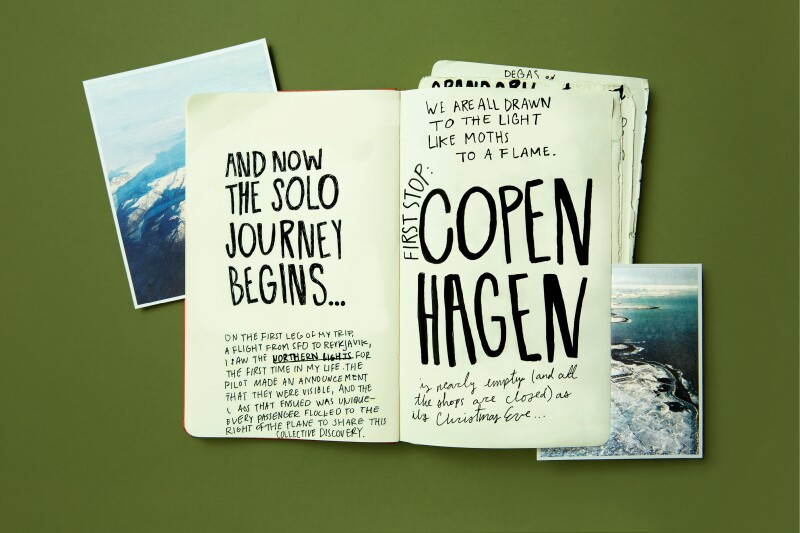 AND NOW
THE SOLO
JOURNEY
BEGINS...
ON THE FIRST LEG OF MY TRIP,
A FLIGHT FROM SFO TO REYKJAVIK,
I SAW THE NORTHERN LIGHTS FOR
THE FIRST TIME IN MY LIFE. THE
PILOT MADE AN ANNOUNCEMENT
THAT THEY WERE VISIBLE, AND THE
AOS THAT ENSUED WAS UNIQUE—
EVERY PASSENGER FLOCKED TO THE
RIGHT OF THE PLANE TO SHARE THIS
COLLECTIVE DISCOVERY.
DEGAS
WE ARE ALL DRAWN
TO THE LIGHT
LIKE MOTHS
TO A FLAME.
FIRST STOP:
COPEN
HAGEN
is nearly empty (and all
the shops are closed) as
its Christmas Eve...